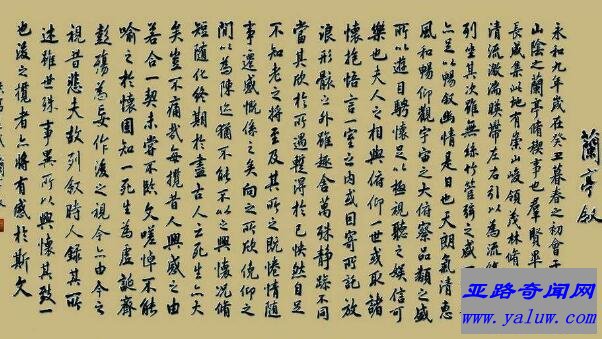 蘭亭叙
永和九年歲在癸丑暮春之初會于
山陰之蘭亭脩稧事也羣賢畢
長咸集此地有崇山峻領茂林脩
清流激湍暎帶左右引以為流
列坐其次雖無絲竹管絃之盛
亦足以暢叙幽情是日也天朗氣清惠
風和暢仰觀宇宙之大俯察品類之盛
所以遊目騁懷足以極視聽之娛信可
樂也夫人之相與俯仰一世或取諸
懷抱悟言一室之内或因寄所託放
浪形骸之外雖趣舍萬殊静躁不同
當其欣於所遇暫得於己怏然自足
不知老之將至及其所之既惓情隨
事遷感慨係之矣向之所欣俛仰之
閒以為陳迹猶不能不以之興懷况脩
短隨化終期於盡古人云死生亦大
矣豈不痛哉每攬昔人興感之由
若合一契未嘗不臨文嗟悼不能
喻之於懷固知一死生為虚誕齊
彭殤為妄作後之視今亦由今之
視昔悲夫故列叙時人錄其所
述雖世殊事異所以興懷其致一
也後之攬者亦將有感於斯文
亚路奇闻网
www.yaluw.com